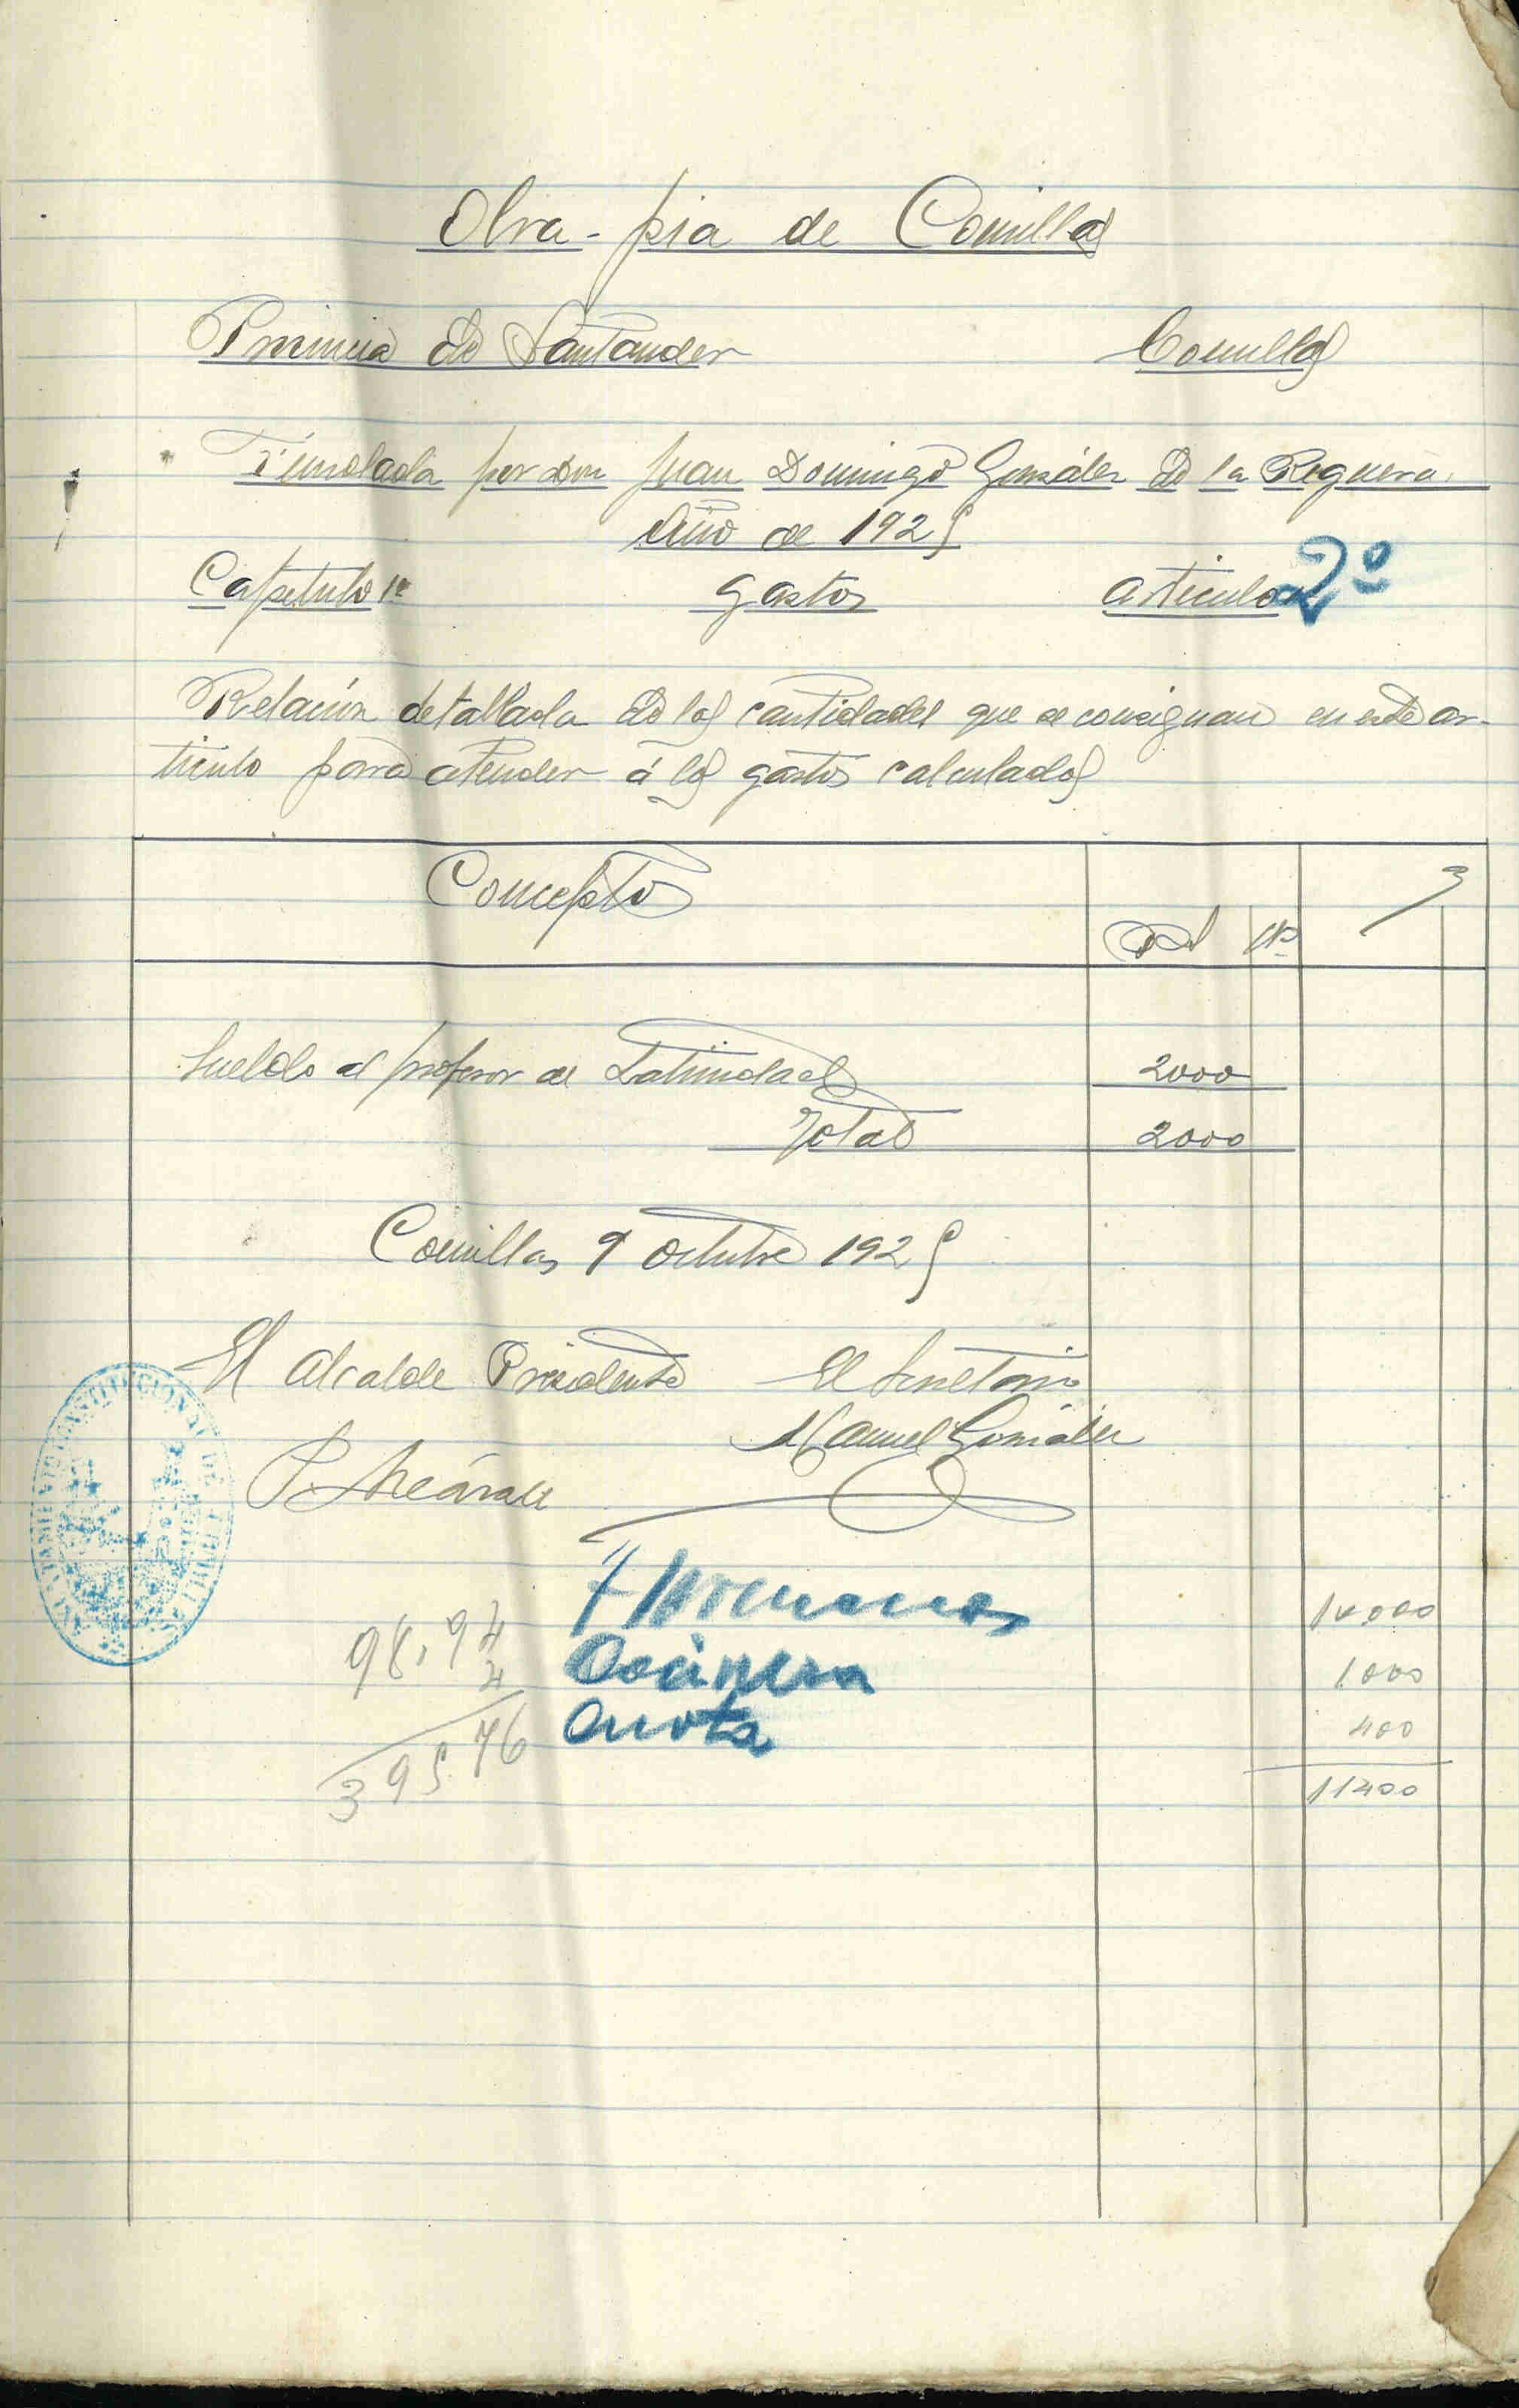 Obra-pia de Comillas
Provincia de Santander Comillas
Fundada por Don Juan Domingo González de la Reguera
Año de 1925
Capítulo 1º Gastos Articulo 2º
Relación detallada de las cantidades que se consignan en este ar-
ticulo para atender á los gastos calculados
Conceptos
Pts Cts
Sueldo al profesor de Latinidad 2000
Total 2000
Comillas 9 Octubre 1925
El Alcalde Presidente El Secretario
Manuel González
7 Hermanos 10.000
98,94 Cocinera 1.000
4 Cuota 400
395 76 11400